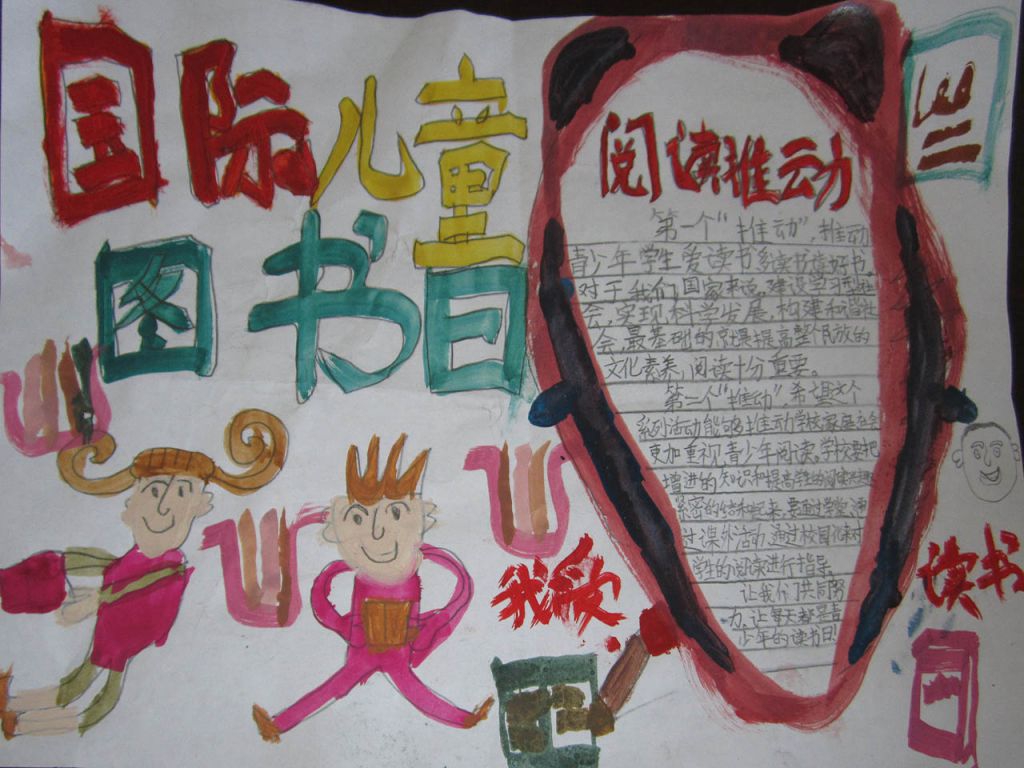 国际儿童
图书日
阅读推动
第一个“推动”,推动
青少年学生爱读书多读书读好书。
对于我们国家来说,建设学习型社
会,实现科学发展,构建和谐社
会,最基础的就是提高整个民族的
文化素养,阅读十分重要。
第二个“推动”希望这个
系列活动能够推动学校家庭社会
更加重视青少年阅读,学校要把
增进的知识和提高学生的阅读
紧密的结合起来,要通过课堂,通
过课外活动,通过校园化来对
学生的阅读进行指导
让我们共同努
力,让每天都是青
少年的读书日!
我爱
读书